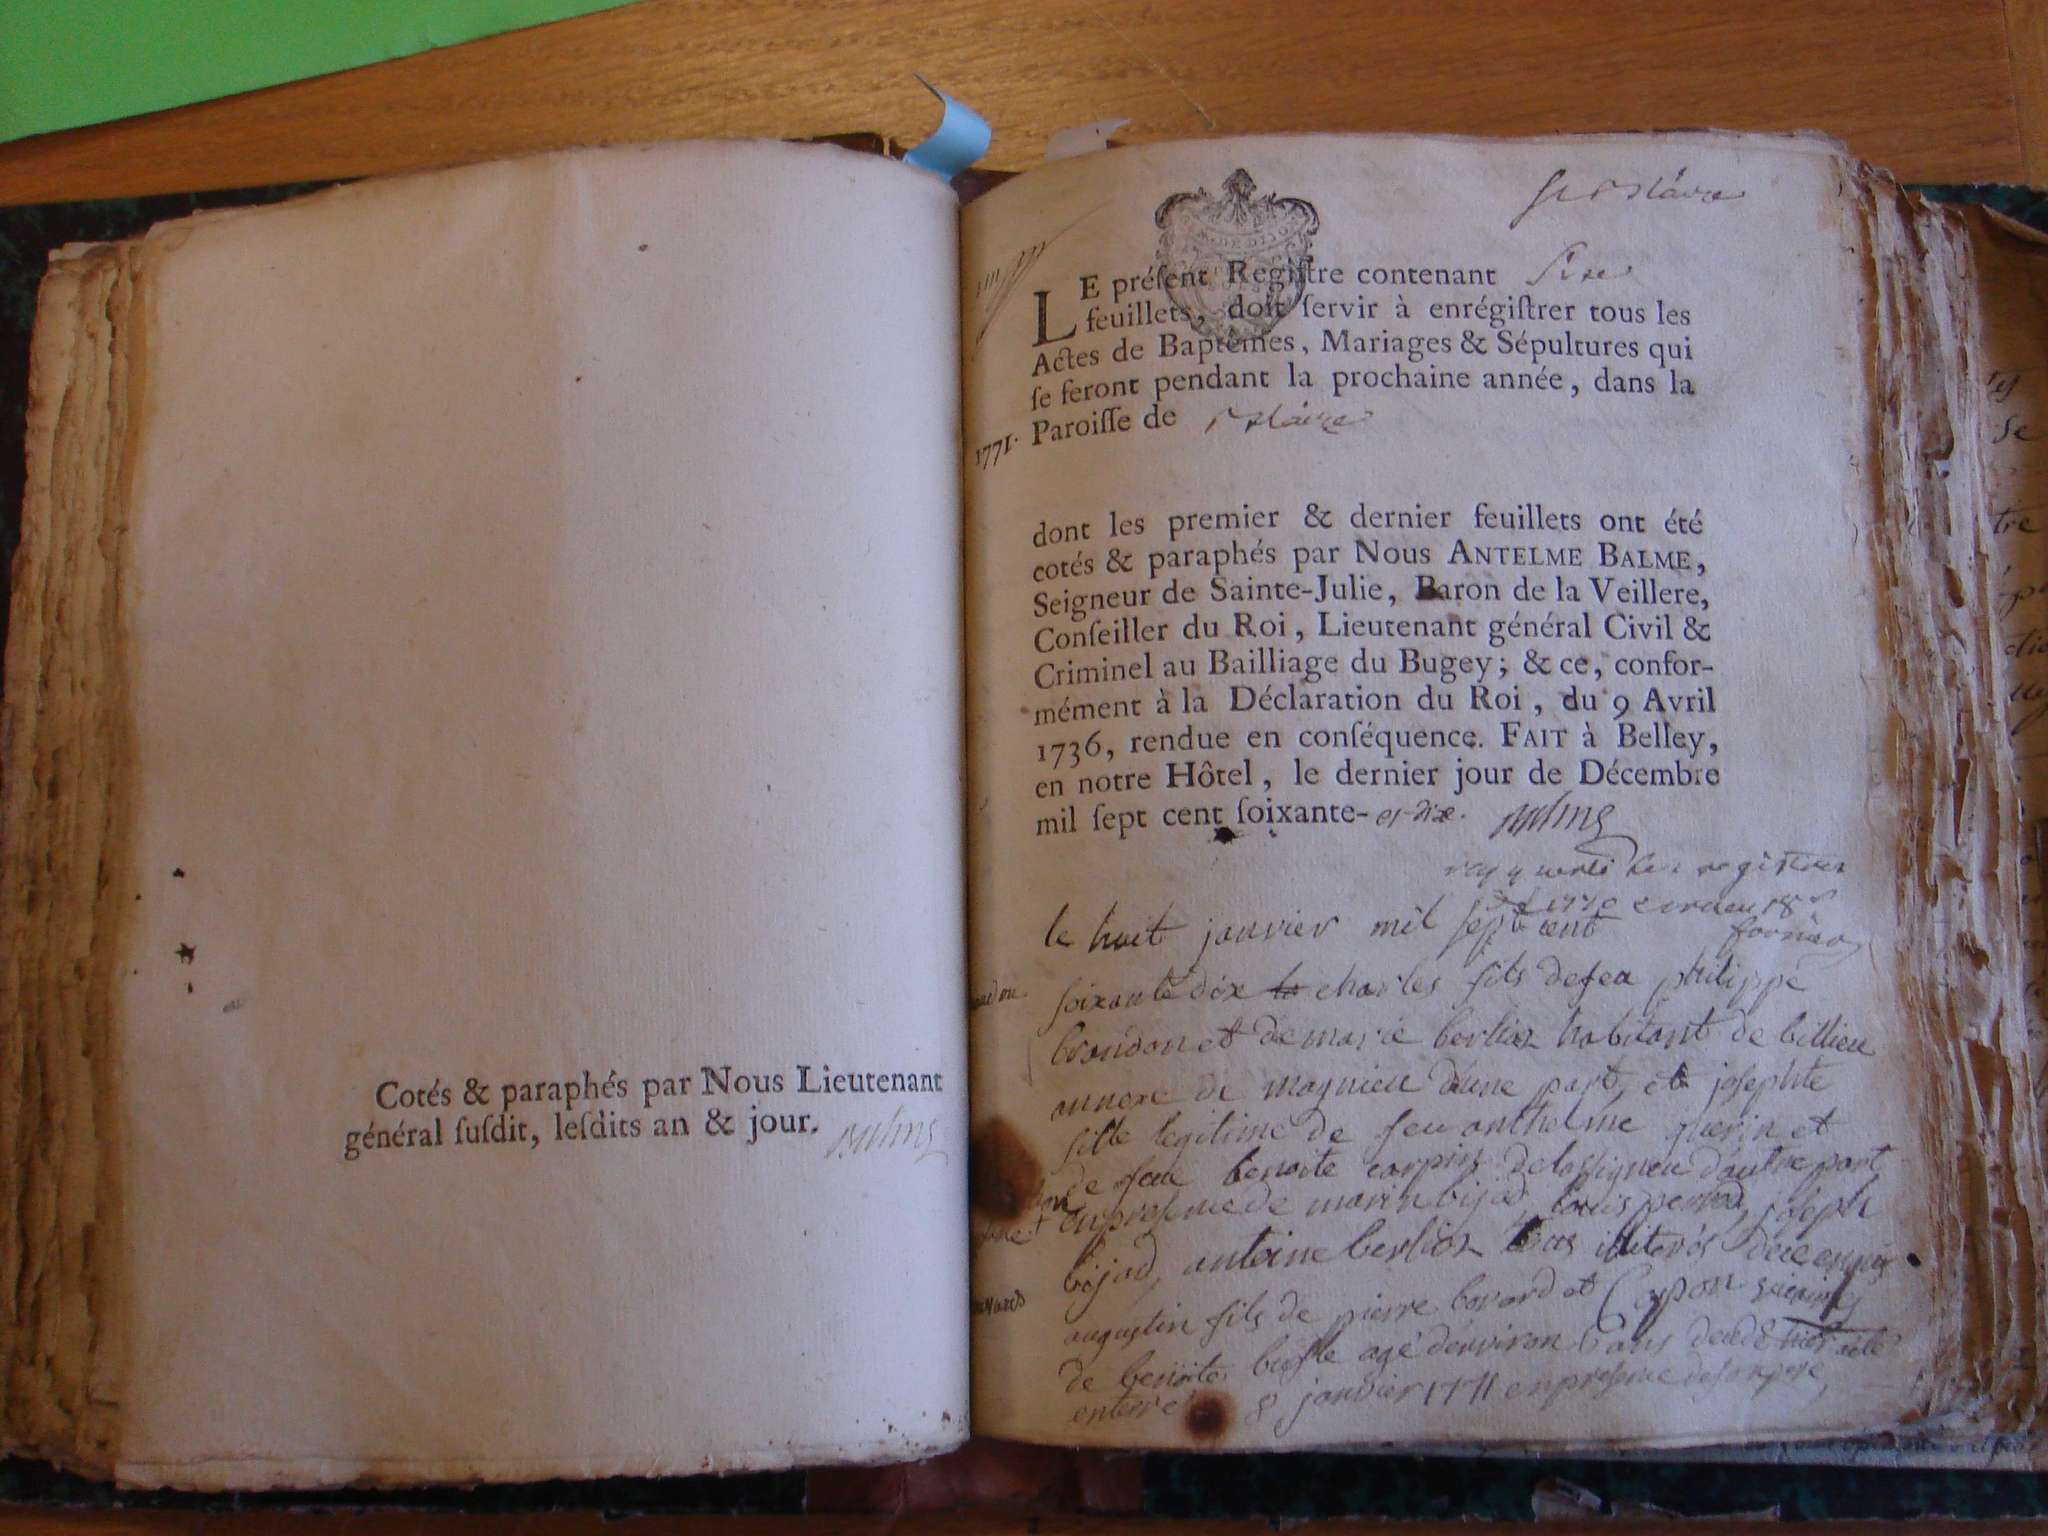 Cotés & paraphés par Nous Lieutenant
général ſuſdit, leſdits an & jour.
LE préſent Regiſtre contenant
feuillets, doit ſervir à enrégiſtrer tous les
Actes de Baptêmes, Mariages & Sépultures qui
ſe feront pendant la prochaine année, dans la
1771. Paroiſſe de
dont les premier & dernier feuillets ont été
cotés & paraphés par Nous ANTELME BALME,
Seigneur de Sainte-Julie, Baron de la Veillere,
Conſeiller du Roi, Lieutenant général Civil &
Criminel au Bailliage du Bugey; & ce, confor-
mément à la Déclaration du Roi, du 9 Avril
1736, rendue en conſéquence. FAIT à Belley,
en notre Hôtel, le dernier jour de Décembre
mil ſept cent ſoixante- et dix. Balme
le huit janvier mil sept cent
soixante dix charles fils de feu philippe
brondon et de marie berlioz habitant de billieu
annexe de magnieu d'une part, et josephte
fille legitime de feu anthelme guerin et
de feue benoite carpin d'autre part
en presence de marin bijod, louis pernod, joseph
bijod, antoine berlioz tous illiterés
augustin fils de pierre bovard et
de benoite agé d'environ 6 ans decedé hier
enterré 8 janvier 1771 en presence de son pere,